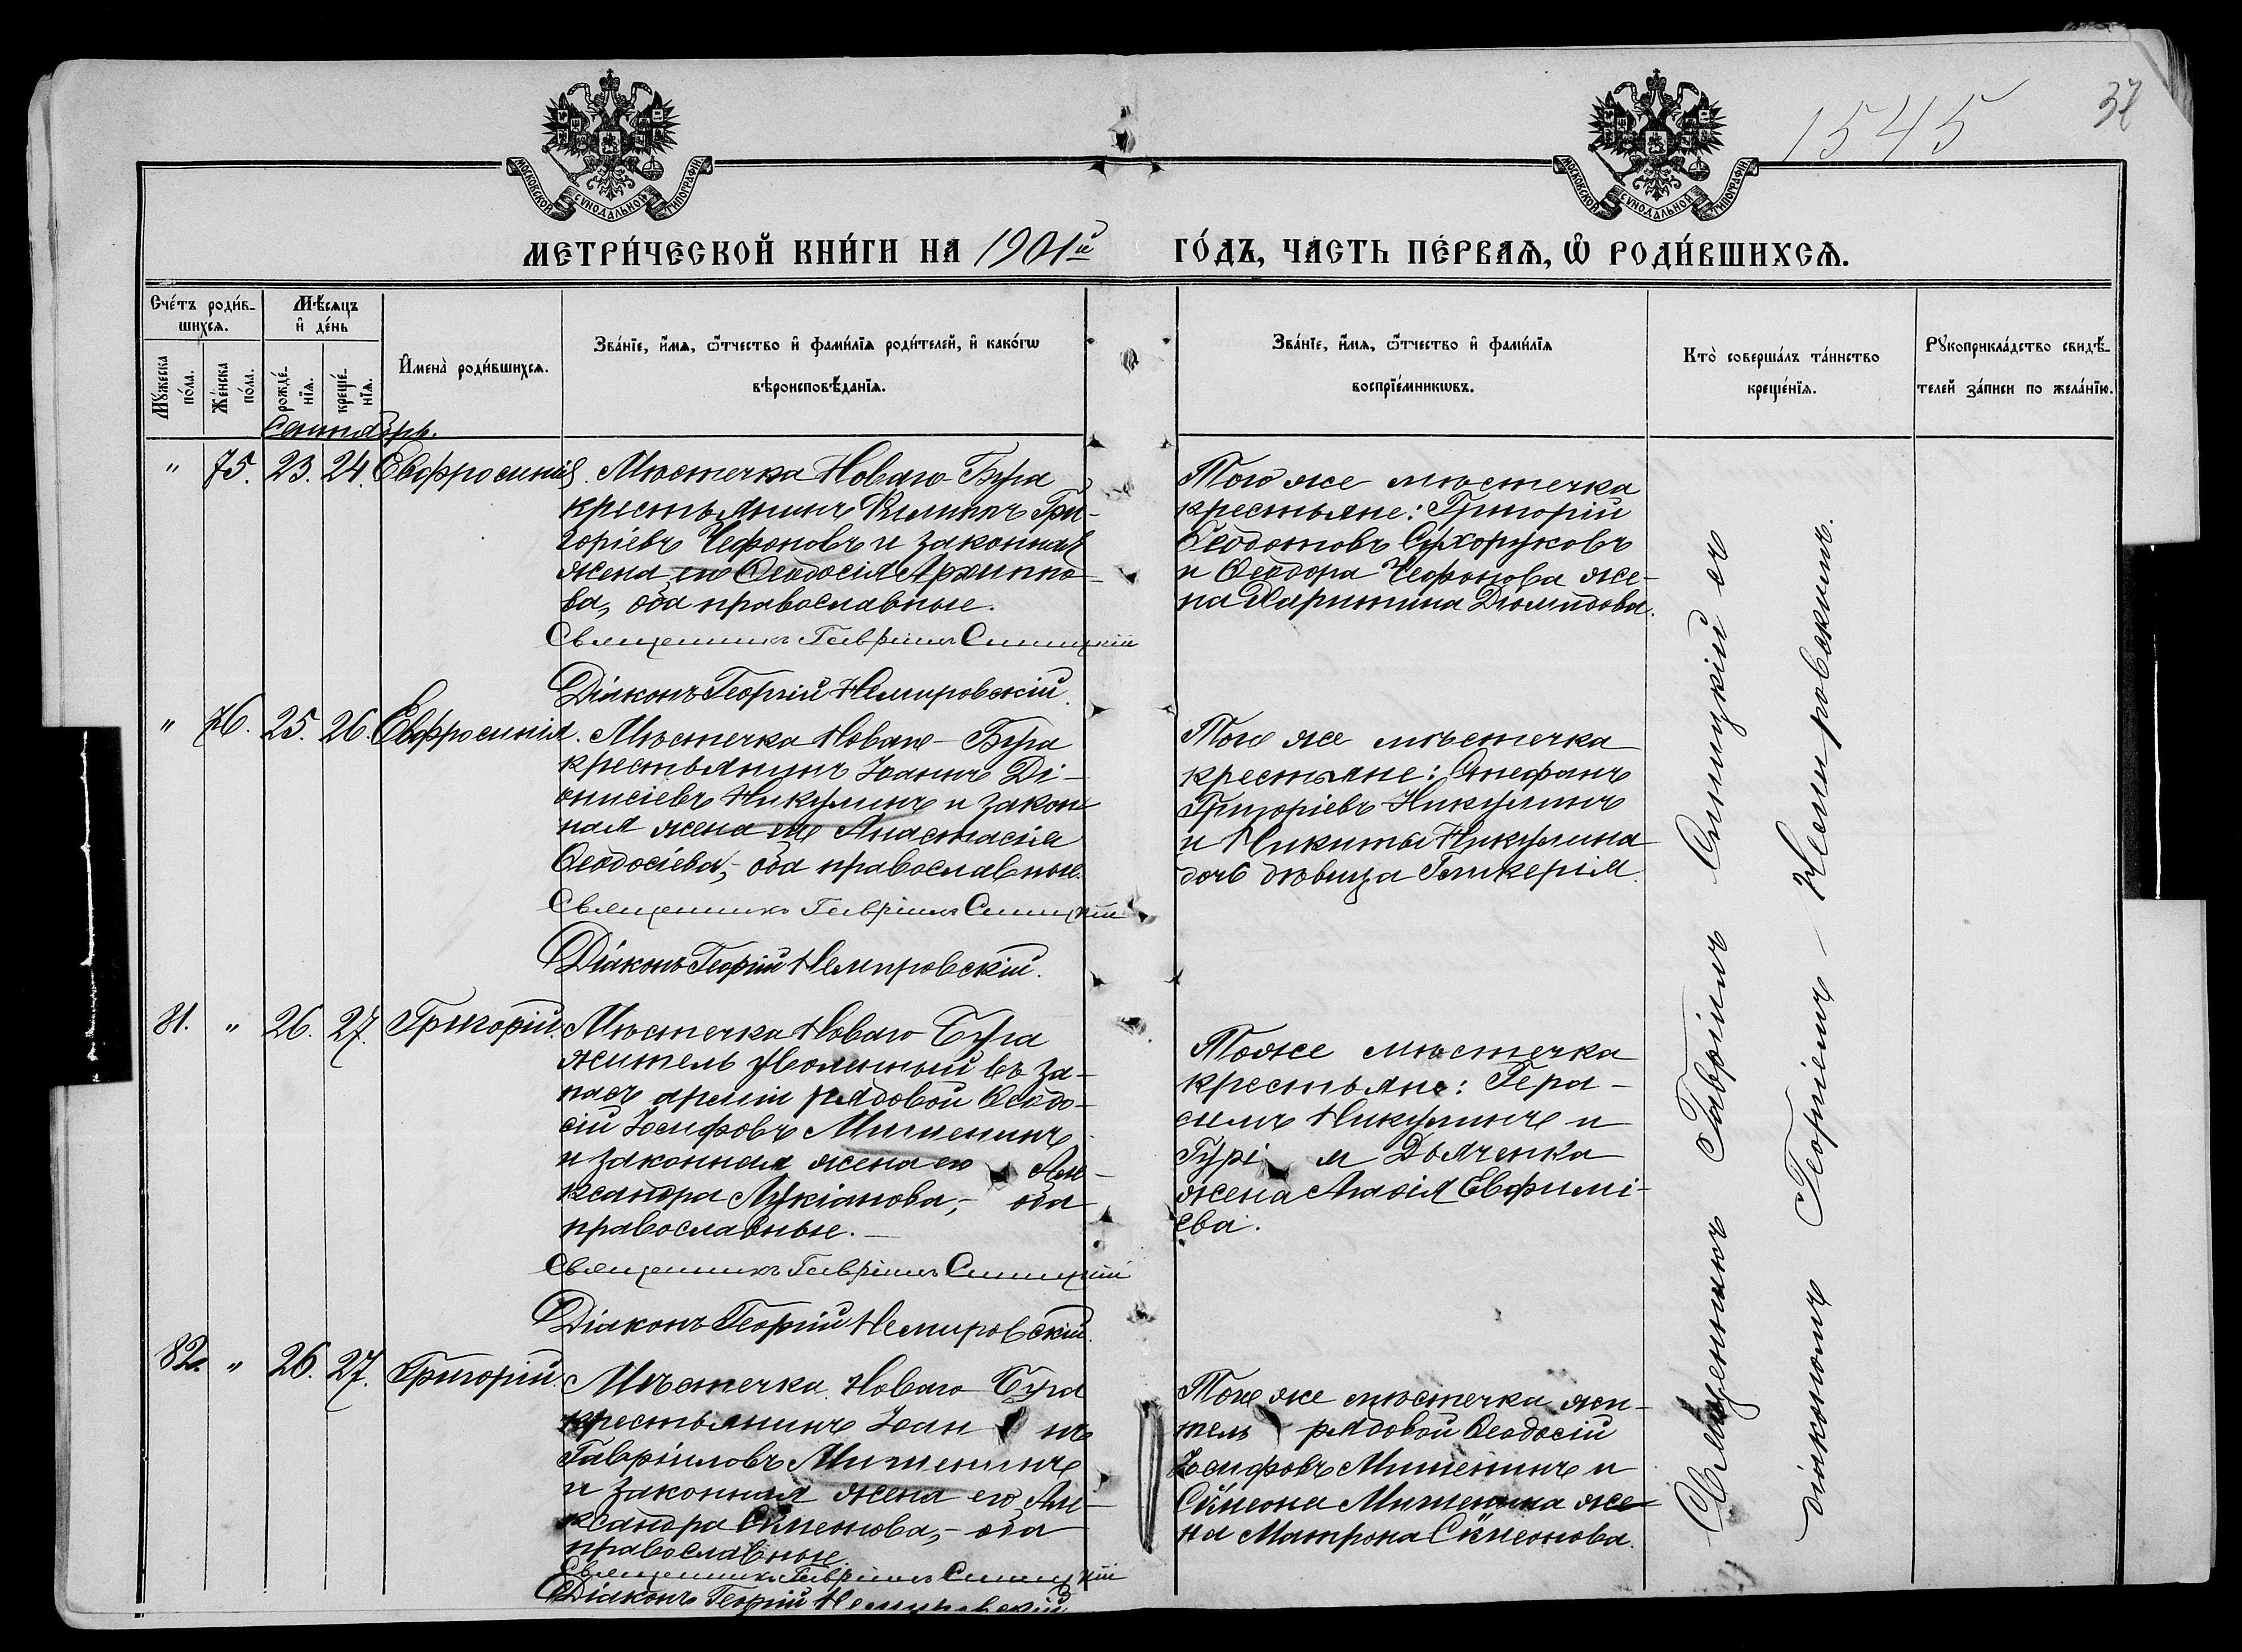 1545
37
МОСКОВСКОЙ СѴНОДАЛЬНОЙ ТИПОГРАФІИ
МОСКОВСКОЙ СѴНОДАЛЬНОЙ ТИПОГРАФІИ
МЕТРИ́ЧЕСКОЙ КНИ́ГИ НА 1901й ГО́ДЪ, ЧА́СТЬ ПЕ́РВАѦ, Ѡ҆ РОДИ́ВШИХСѦ.
Сче́тъ роди́в-
шихсѧ.
Мѣ́сѧцъ
и҆ де́нь
Мꙋ́жеска
по́ла.
Же́нска
по́ла.
рожде́-
нїѧ.
креще́-
нїѧ.
И҆мена̀ роди́вшихсѧ.
Зва́нїе, и҆́мѧ, ѻ҆́тчество и҆ фами́лїѧ роди́телей, и҆ како́гѡ
вѣроисповѣ́данїѧ.
Зва́нїе, и҆́мѧ, ѻ҆́тчество и҆ фами́лїѧ
воспрїе́мникѡвъ.
Кто̀ соверша́лъ та́инство
креще́нїѧ.
Рꙋкоприкла́дство свидѣ́-
телей за́писи по жела́нїю.
Сентябрь.
" 75. 23. 24. Евфросинія. Мѣстечка Новаго-Буга
крестьянинъ Филиппъ Гри-
горіевъ Чефоновъ и законная
жена его Ѳеодосія Архиппо-
ва, оба православные.
Священникъ Гавріилъ Синицкій
Діаконъ Георгій Немировскій.
Того же мѣстечка
крестьяне: Григорій
Ѳеодотовъ Сухоруковъ
и Ѳеодора Чефонова же-
на Харитина Діомидова.
" 76. 25. 26. Евфросинія. Мѣстечка Новаго-Буга
крестьянинъ Іоаннъ Ді-
онисіевъ Никулинъ и закон-
ная жена его Анастасія
Ѳеодосіева, оба православные.
Священникъ Гавріилъ Синицкій
Діаконъ Георгій Немировскій.
Того же мѣстечка
крестьяне: Стефанъ
Григоріевъ Никулинъ
и Никиты Никулина
дочь дѣвица Гликерія.
81. " 26. 27. Григорій. Мѣстечка Новаго Буга
житель уволенный въ за-
пасъ арміи рядовой Ѳеодо-
сій Іосифовъ Мишенинъ
и законная жена его Але-
ксандра Лукіанова, - оба
православные. -
Священникъ Гавріилъ Синицкій
Діаконъ Георгій Немировскій.
Тоже мѣстечка
крестьяне: Гера-
симъ Никулинъ и
Гурія Дьяченка
жена Агаѳія Евфимі-
ева.
82. " 26. 27. Григорій. Мѣстечка Новаго Буга
крестьянинъ Іоаннъ
Гавріиловъ Мишенинъ
и законная жена его Але-
ксандра Симеонова, - оба
православные.
Священникъ Гавріилъ Синицкій
Діаконъ Георгій Немировскій
Того же мѣстечка жи-
тель рядовой Ѳеодосій
Іосифовъ Мишенинъ и
Сѵмеона Мишенина же-
на Матрона Сѵмеонова.
Священникъ Гавріилъ Синицкій съ
діакономъ Георгіемъ - Немировскимъ.